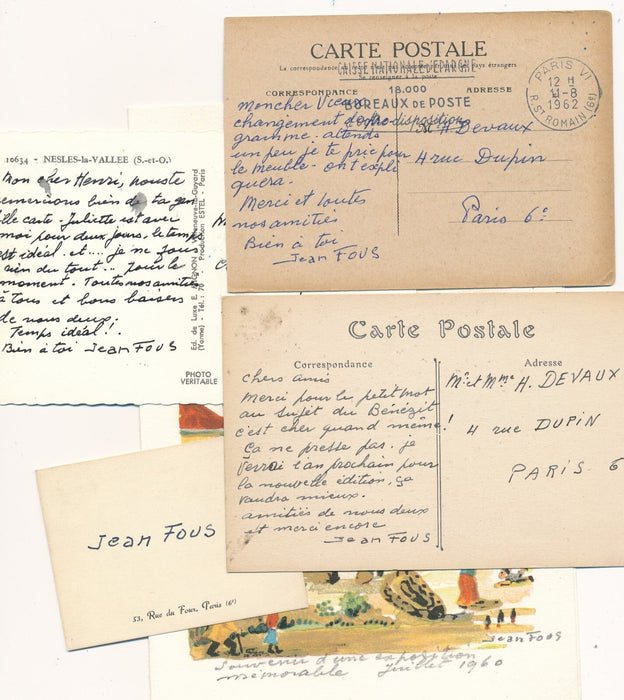 CARTE POSTALE
CAISSE NATIONALE D'EPARGNE
La correspondance pays étrangers
Se renseigner à la poste
CORRESPONDANCE
18.000
ADRESSE
BUREAUX DE POSTE
PARIS VI
12 H
11-8
1962
R. ST ROMAIN (6e)
mon cher Vieux
changement de pro
à votre disposition
gramme. attends
un peu je te prie pour
le meuble. ont expli
quera.
Merci et toutes
nos amitiés
Bien à toi
Jean FOUS
H. Devaux
4 rue Dupin
Paris 6e
10634 - NESLES-la-VALLEE (S.-et-O.)
Mon cher Henri, nous te
remercions bien de ta gen
tille carte - Juliette est avec
moi pour deux jours, le temps
est idéal et.... je ne fous
rien du tout... pour le
moment. Toutes nos amitiés
à tous et bons baisers
de nous deux.
Temps idéal!!.
Bien à toi Jean FOUS
Villeneuve-la-Guyard
(Yonne) - Tél. : 70
Production ESTEL - Paris
PHOTO
VERITABLE
Carte Postale
Correspondance
Adresse
chers amis
Merci pour le petit mot
au sujet du Bénézit
c'est cher quand même!
Ça ne presse pas. je
verrai l'an prochain pour
la nouvelle édition, ça
vaudra mieux.
amitiés de nous deux
et merci encore
Jean FOUS
Mr et Mme H. DEVAUX
4 rue DUPIN
PARIS 6
Jean FOUS
53, Rue du Four, Paris (6e)
Jean FOUS
Souvenir d'une exposition
mémorable Juillet 1960